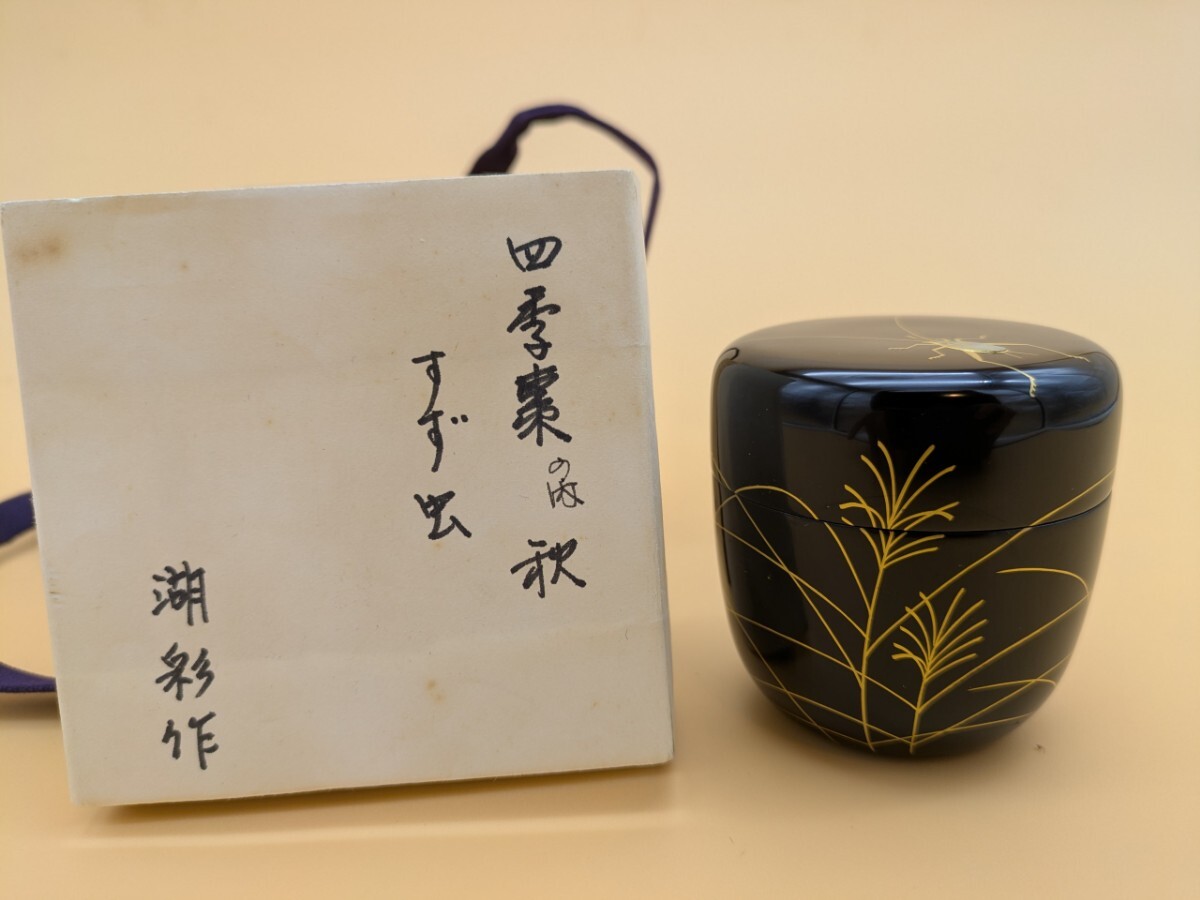 四季棗の内 秋
すず虫
湖彩作